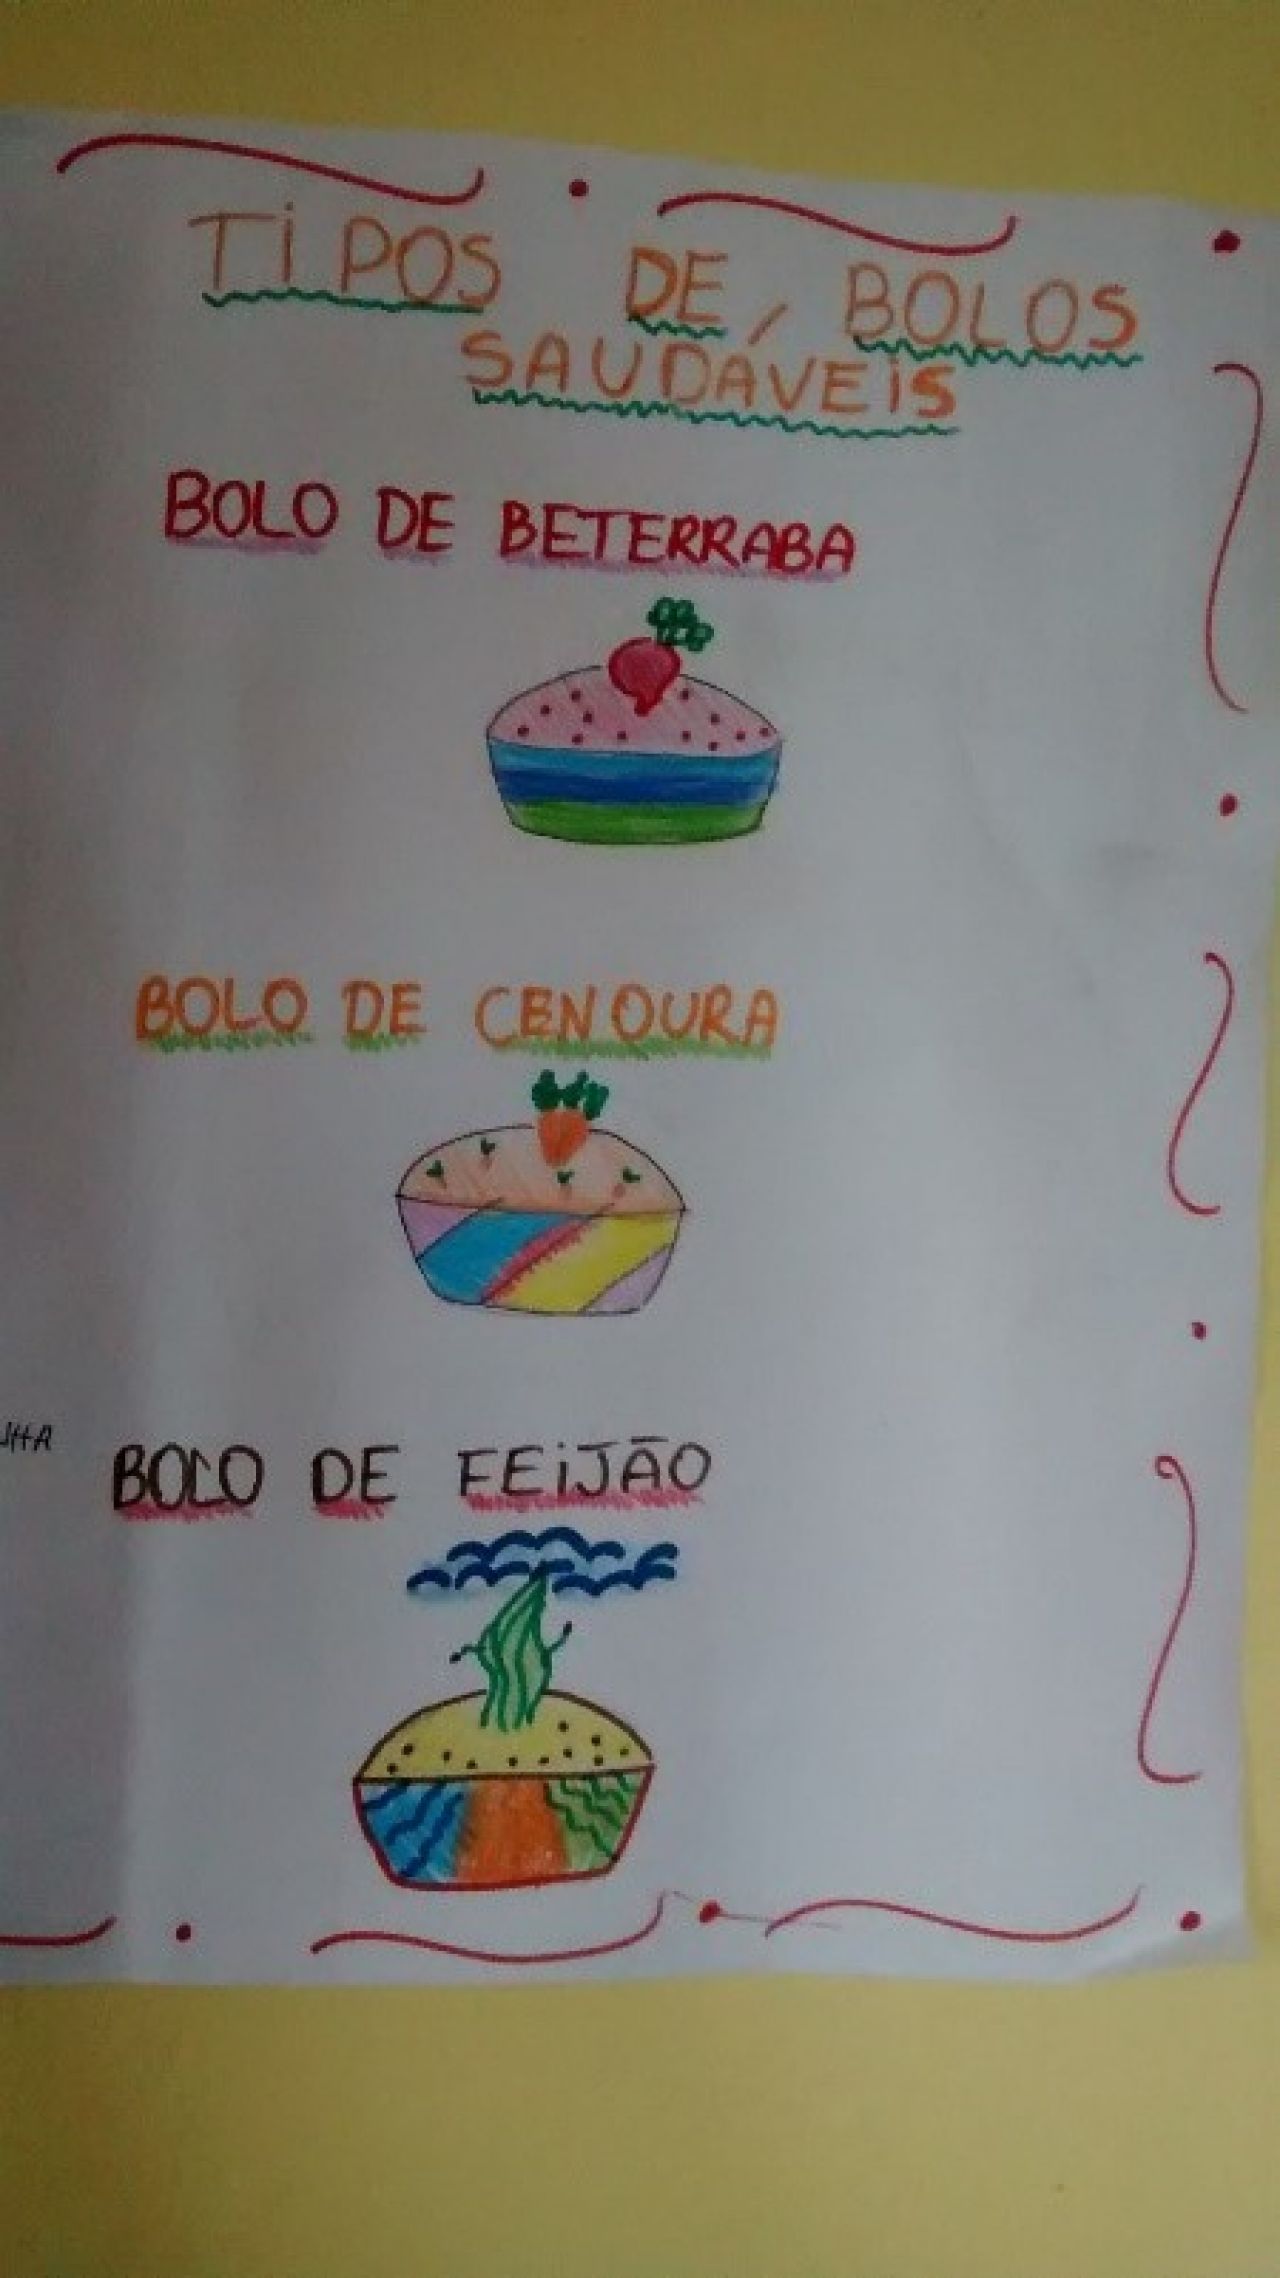 TiPOS DE BOLOS
SAUDÁVEiS
BOLO DE BETERRABA
BOLO DE CENOURA
BOLO DE FEiJÃO